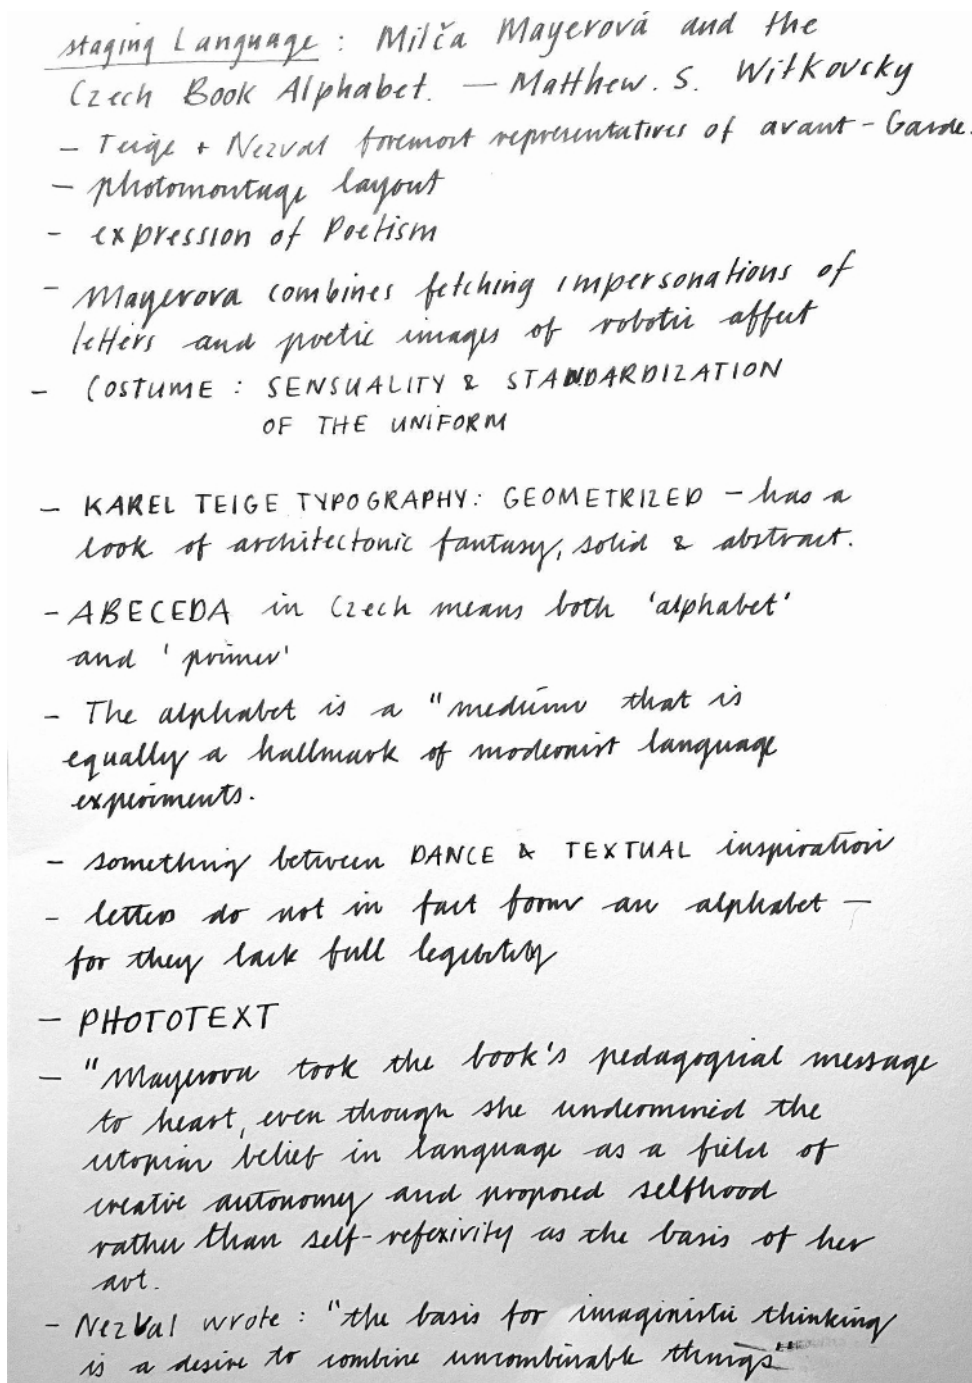 staging Language : Milča Mayerová and the
Czech Book Alphabet. — Matthew. S. Witkovsky
- Teige + Nezval foremost representatives of avant-Garde.
- photomontage layout
- expression of Poetism
- Mayerova combines fetching impersonations of
letters and poetic images of robotic affect
- COSTUME : SENSUALITY & STANDARDIZATION
OF THE UNIFORM
- KAREL TEIGE TYPOGRAPHY: GEOMETRIZED - has a
look of architectonic fantasy, solid & abstract.
- ABECEDA in Czech means both 'alphabet'
and 'primer'
- The alphabet is a "medium that is
equally a hallmark of modernist language
experiments.
- something between DANCE & TEXTUAL inspiration
- letters do not in fact form an alphabet —
for they lack full legibility
- PHOTOTEXT
- "Mayerova took the book's pedagogical message
to heart, even though she undermined the
utopian belief in language as a field of
creative autonomy and proposed selfhood
rather than self-refexivity as the basis of her
art.
- Nezval wrote : "the basis for imaginistic thinking
is a desire to combine uncombinable things"